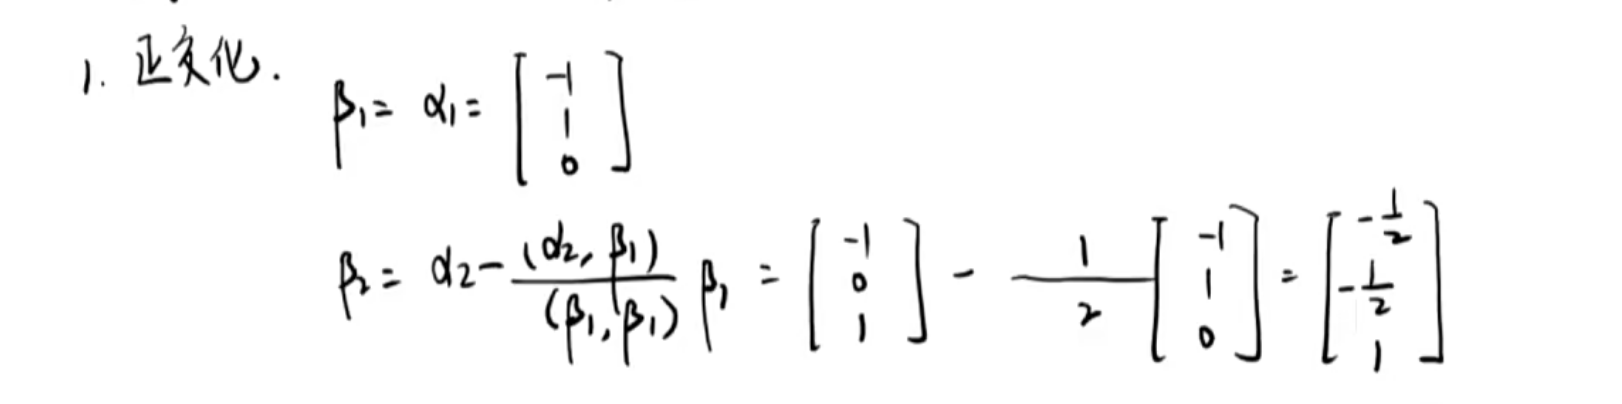 1. 正交化.
β₁ = α₁ = [-1 1 0]
β₂ = α₂ - (α₂, β₁)/(β₁, β₁) β₁ = [-1 0 1] - 1/2 [-1 1 0] = [-1/2 -1/2 1]